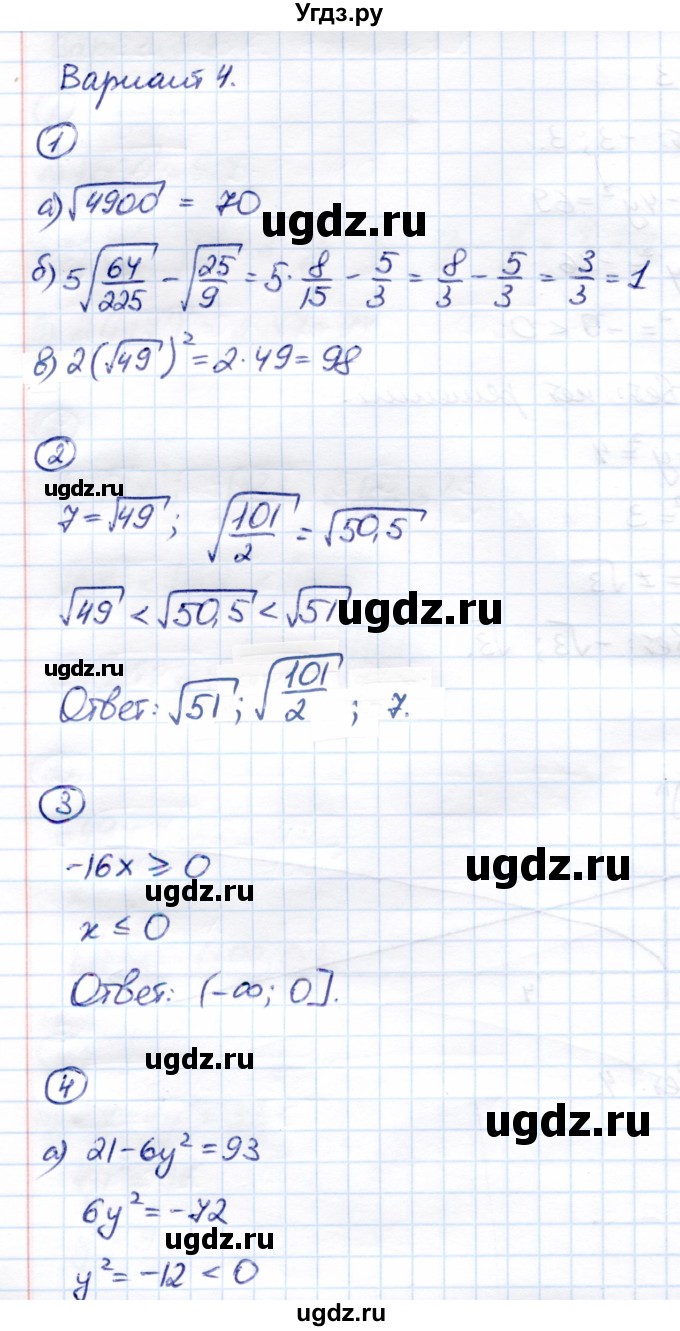 Угдз.ру
Вариант 4.
1
а) √4900 = 70
ugdz.ru
б) 5√(64/225) - √(25/9) = 5 · 8/15 - 5/3 = 8/3 - 5/3 = 3/3 = 1
в) 2(√49)² = 2 · 49 = 98
2
ugdz.ru
7 = √49 ; √(101/2) = √50,5
√49 < √50,5 < √51
ugdz.ru
ugdz.ru
Ответ: √51 ; √(101/2) ; 7.
3
-16x ⩾ 0
ugdz.ru
ugdz.ru
x ≤ 0
Ответ: (-∞; 0].
ugdz.ru
4
ugdz.ru
а) 21 - 6y² = 93
6y² = -72
ugdz.ru
y² = -12 < 0
ugdz.ru